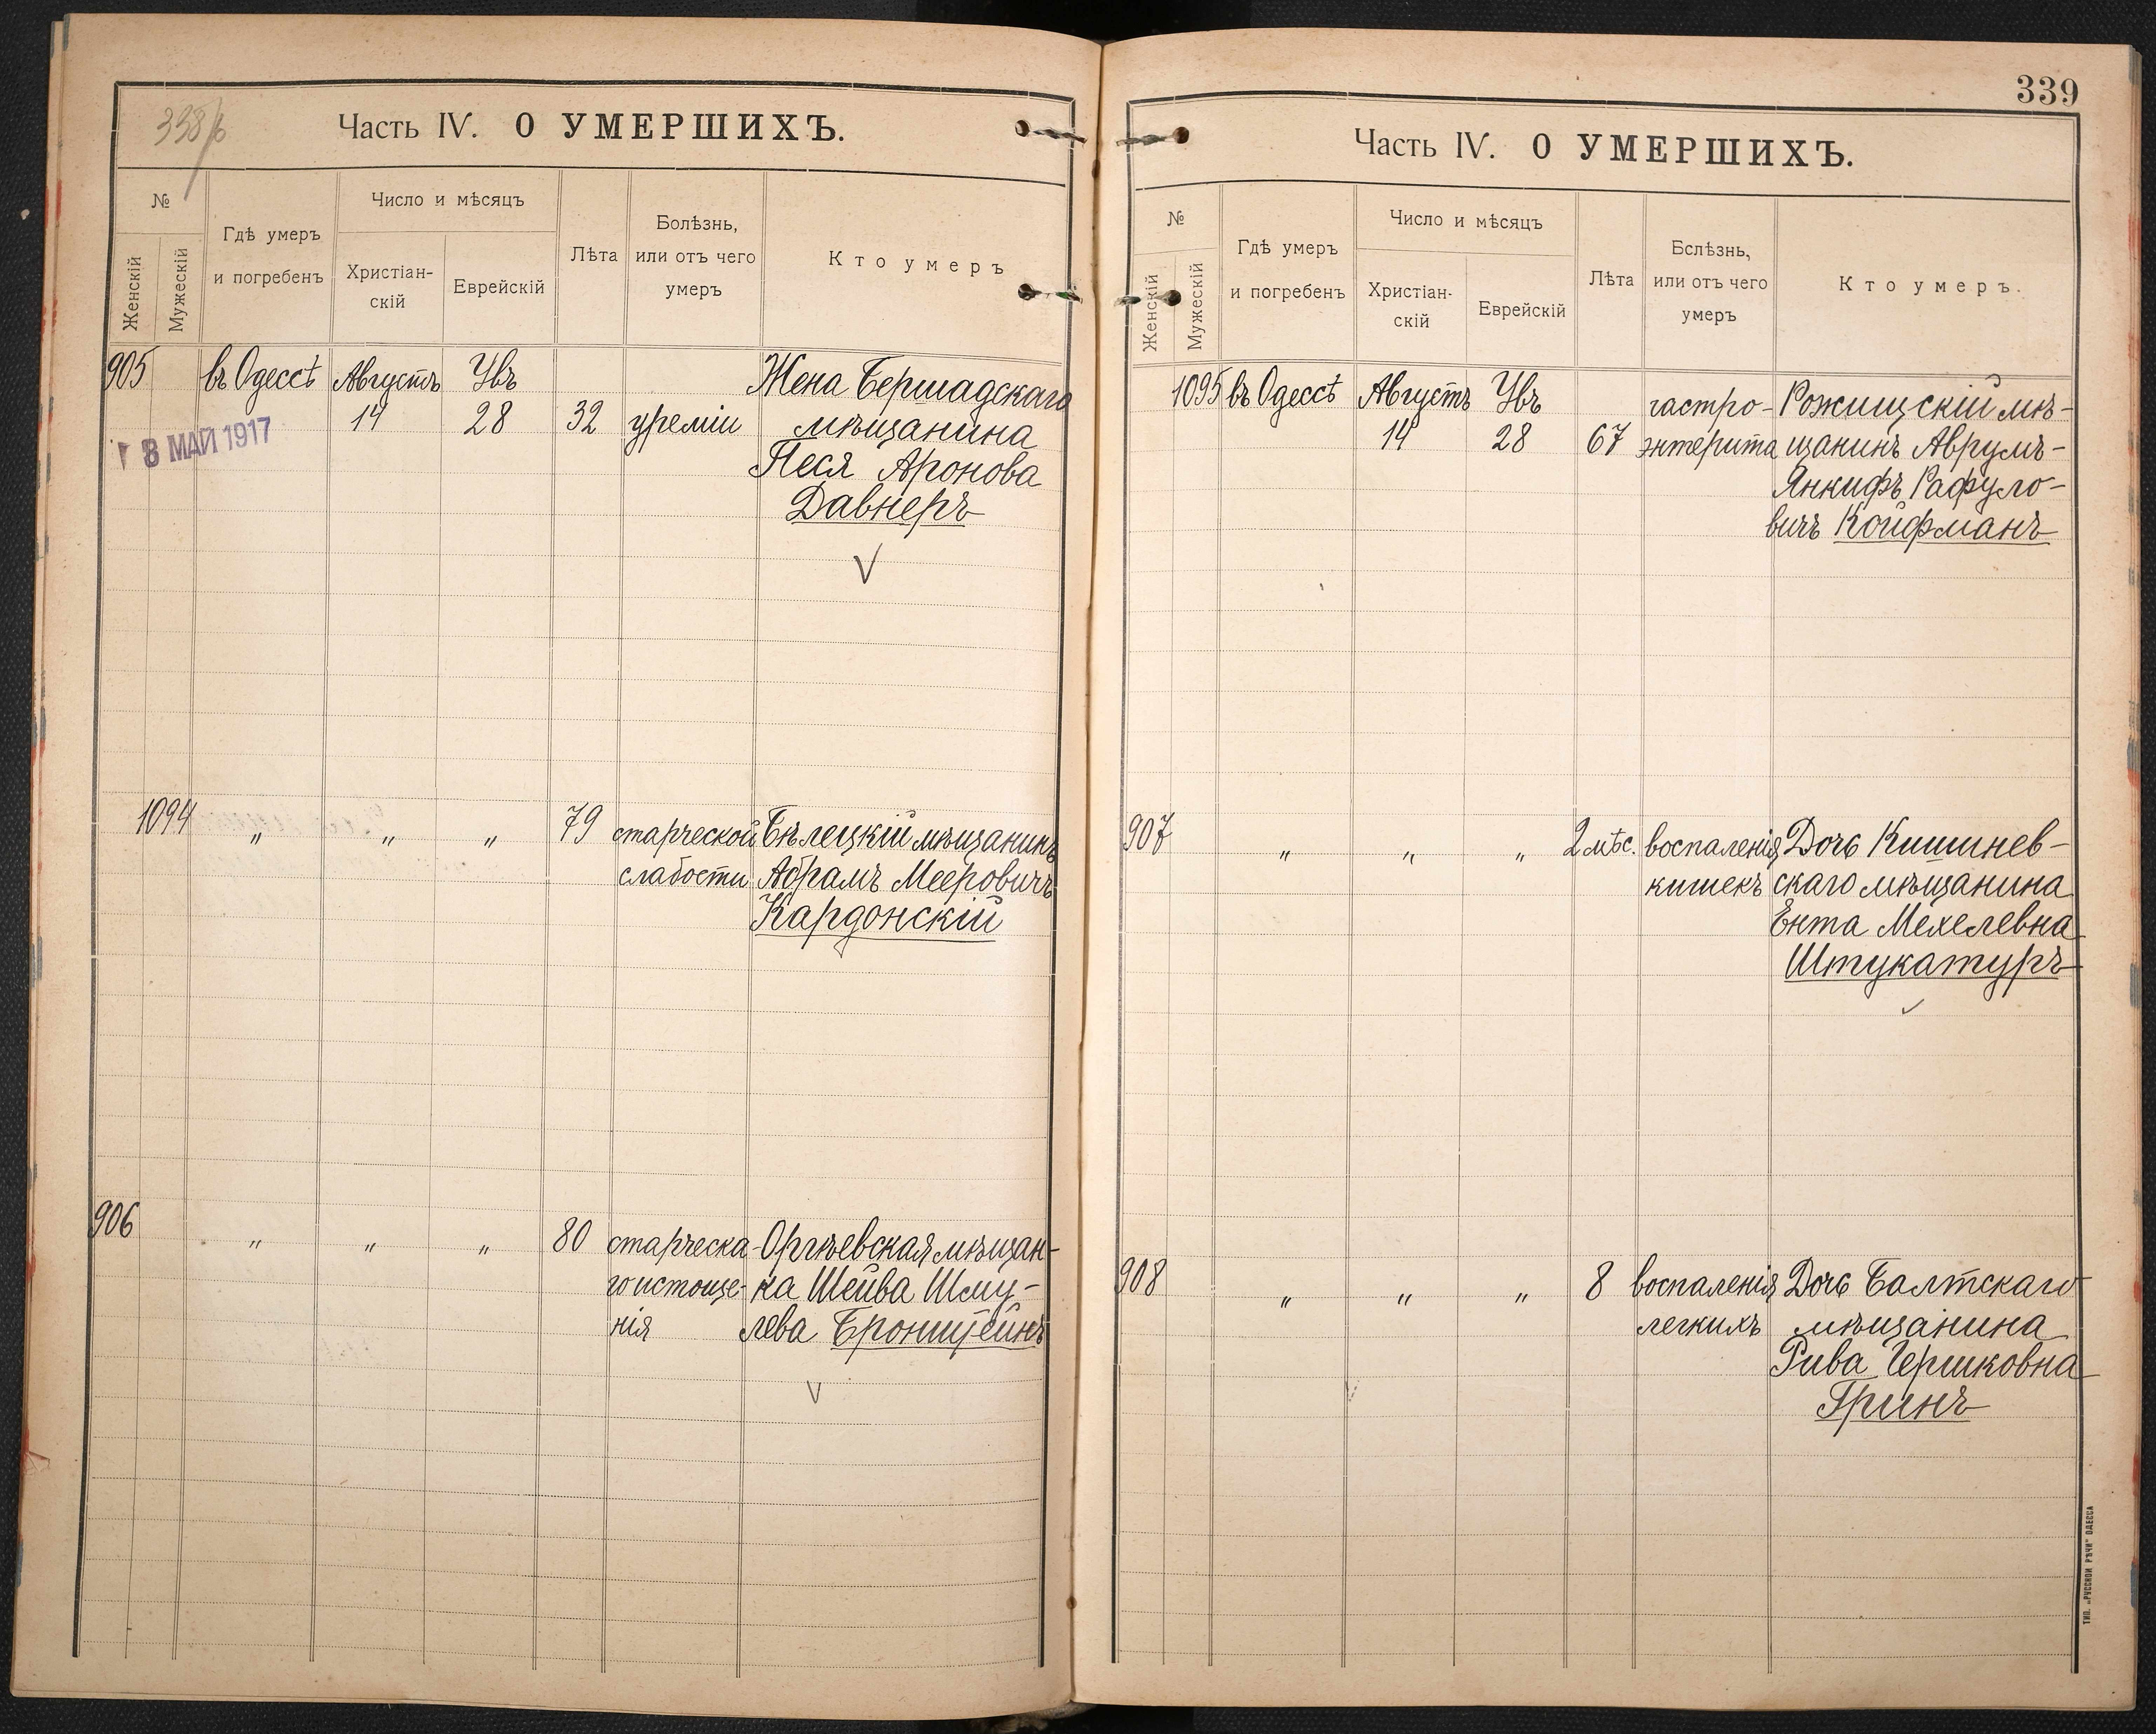 338 об
Часть IV. О УМЕРШИХЪ.
№
Женскій
Мужескій
Гдѣ умеръ
и погребенъ
Число и мѣсяцъ
Христіан-
скій
Еврейскій
Лѣта
Болѣзнь,
или отъ чего
умеръ
Кто умеръ
905 въ Одессѣ Августъ Убъ Жена Бершадскаго
14 28 32 уреміи мѣщанина
8 МАЙ 1917
Песя Аронова
Давнеръ
1094 „ „ „ 79 старческой Бѣлецкій мѣщанинъ
слабости Абрамъ Мееровичъ
Кардонскій
906 „ „ „ 80 старческа- Оргѣевская мѣщан-
го истоще- ка Шейва Шму-
нія лева Бронштейнъ
339
Часть IV. О УМЕРШИХЪ.
№
Женскій
Мужескій
Гдѣ умеръ
и погребенъ
Число и мѣсяцъ
Христіан-
скій
Еврейскій
Лѣта
Бслѣзнь,
или отъ чего
умеръ
Кто умеръ.
1095 въ Одессѣ Августъ Убъ гастро- Рожищскій мѣ-
14 28 67 энтерита щанинъ Аврумъ-
Янкифъ Рафуло-
вичъ Койфманъ
907 „ „ „ 2 мѣс. воспаленія Дочь Кишинев-
кишекъ скаго мѣщанина
Ента Мехелевна
Штукатуръ
908 „ „ „ 8 воспаленія Дочь Балтскаго
легкихъ мѣщанина
Рива Гершковна
Гринъ
ТИП. „РУССКОЙ РѢЧИ" ОДЕССА